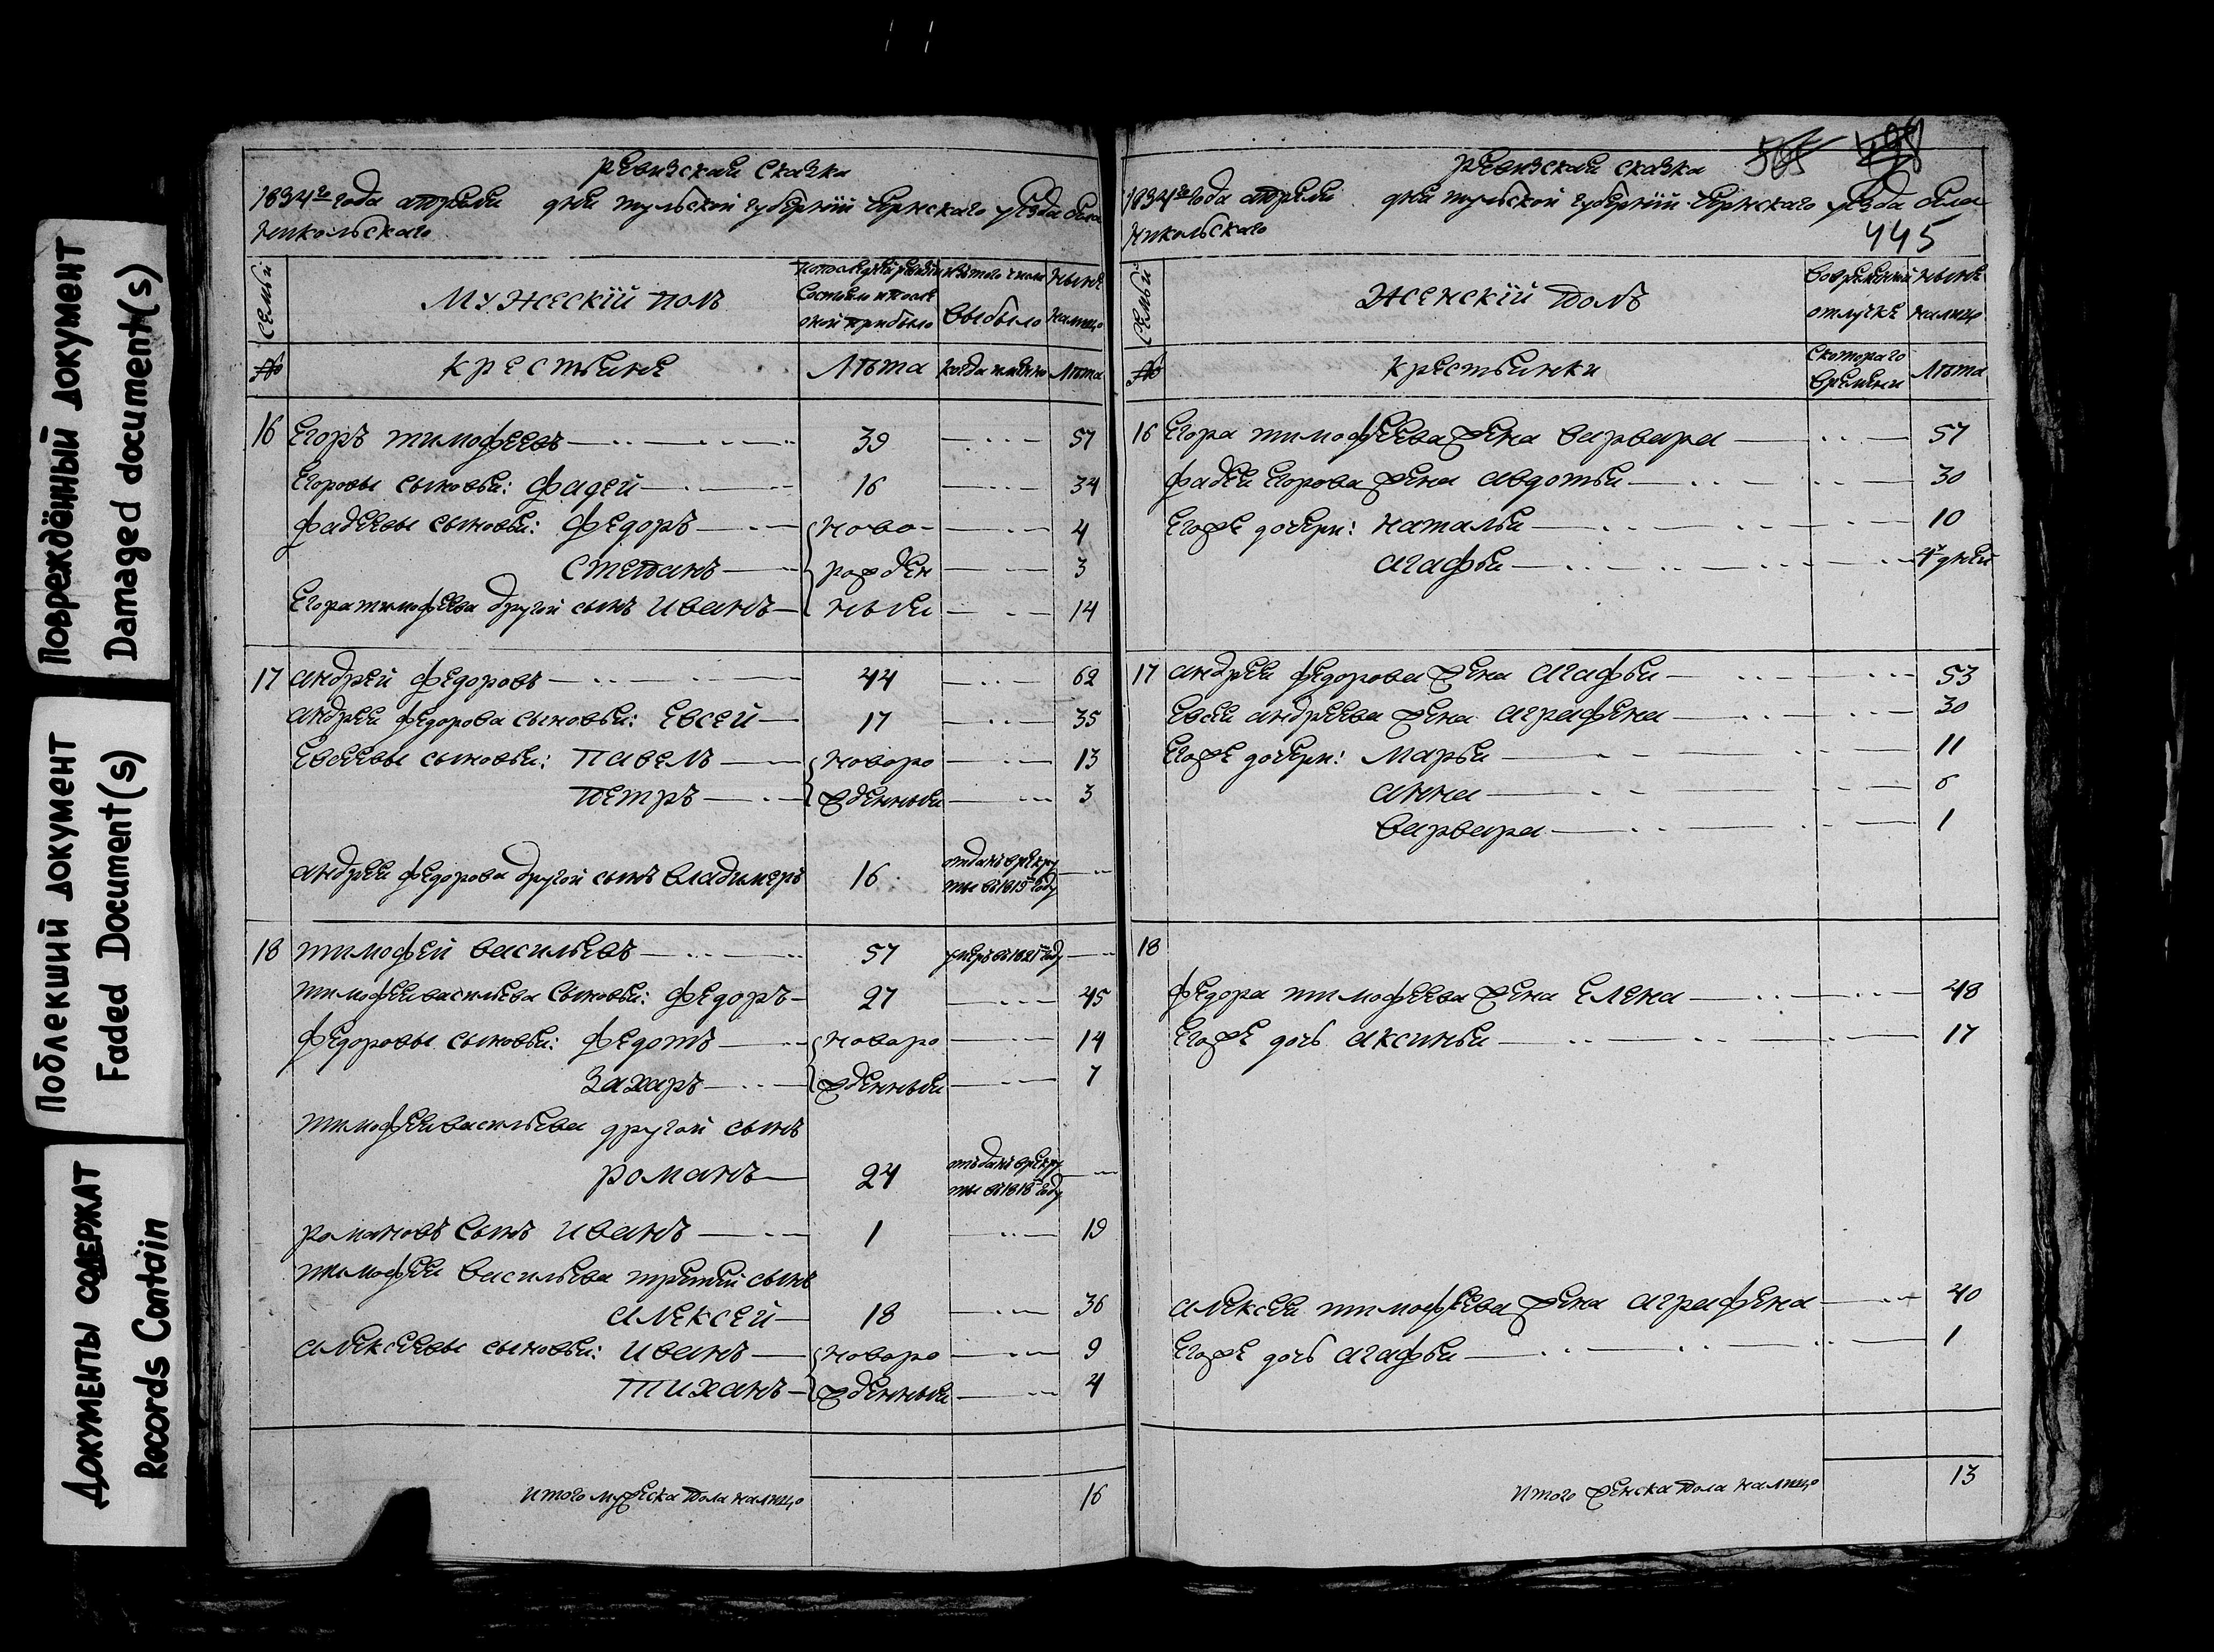 Повреждённый документ
Damaged document(s)
Поблекший документ
Faded Document(s)
Документы содержат
Records Contain
Ревизская сказка
1834го года апреля дня Тульской губернии Чернского уезда села
Никольскаго
Семьи
Мужескій полъ
Последней ревизии
состояло и после
оной прибыло
Изъ того числа
выбыло
Ныне
налицо
№
Крестьяне
Лѣта
Когда именно
Лѣта
16 Егоръ Тимофеевъ 39 57
Егоровы сыновья: Фадей 16 34
Фадеевы сыновья: Федоръ ново- 4
Степанъ рожден 3
Егора Тимофеева другой сынъ Иванъ ныя 14
17 Андрей Федоровъ 44 62
Андрея Федорова сыновья: Евсей 17 35
Евсеевы сыновья: Павелъ новоро 13
Петръ жденныя 3
Андрея Федорова другой сынъ Владимеръ 16 отданъ в рекру
ты въ 1819м году
18 Тимофей Васильевъ 57 умеръ въ 1821м году
Тимофея Васильева сыновья: Федоръ 27 45
Федоровы сыновья: Федотъ новоро 14
Захаръ жденныя 7
Тимофея Васильева другой сынъ
Романъ 24 отъданъ в рекру
ты въ 1818м году
Романовъ сынъ Иванъ 1 19
Тимофея Васильева третей сынъ
Алексей 18 36
Алексеевы сыновья: Иванъ новоро 9
Тиханъ жденныя 4
Итого мужеска пола налицо 16
445
Ревизская сказка
1834го года апреля дня Тульской губернии Чернского уезда села
Никольскаго
Семьи
Женскій полъ
Во временной
отлучке
Ныне
налицо
№
Крестьянки
С котораго
времени
Лѣта
16 Егора Тимофеева жена Варвара 57
Фадея Егорова жена Авдотья 30
Егоже дочери: Наталья 10
Агафья 4х дней
17 Андрея Федорова жена Агафья 53
Евсея Андреева жена Аграфена 30
Егоже дочери: Марья 11
Анна 6
Варвара 1
18
Федора Тимофеева жена Елена 48
Егоже дочь Аксинья 17
Алексея Тимофеева жена Аграфена 40
Егоже дочь Агафья 1
Итого женска пола налицо 13